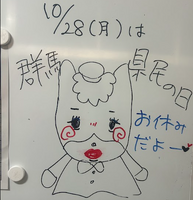 10/28(月)は
群馬県民の日
お休み
だよー